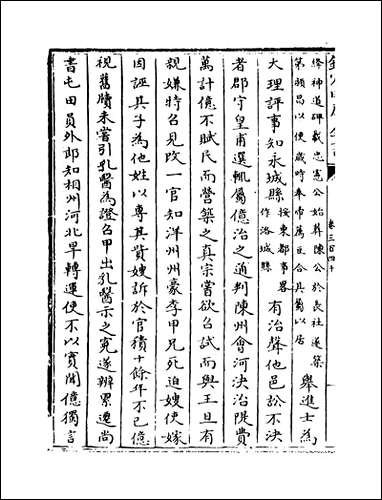 欽定四庫全書
卷三百四十
絳神道碑載忠憲公始葬陳公於長社遂築
第潁昌以便歲時奉 以居
舉進士為
大理評事知永城縣
按東都事畧
作洛城縣
有治聲他邑訟不決
者郡守皇甫選輒屬億治之通判陳州會河決治隄費
萬計億不賦民而營築之真宗嘗欲召試而與王旦有
親嫌特召見改一官知洋州州豪李甲兄死迫嫂使嫁
因誣其子為他姓以專其貲嫂訴於官積十餘年不已億
視舊牘未嘗引乳醫為證召甲出乳醫示之冤遂辨累遷尚
書屯田員外郎知相州河北旱轉運使不以實聞億獨言